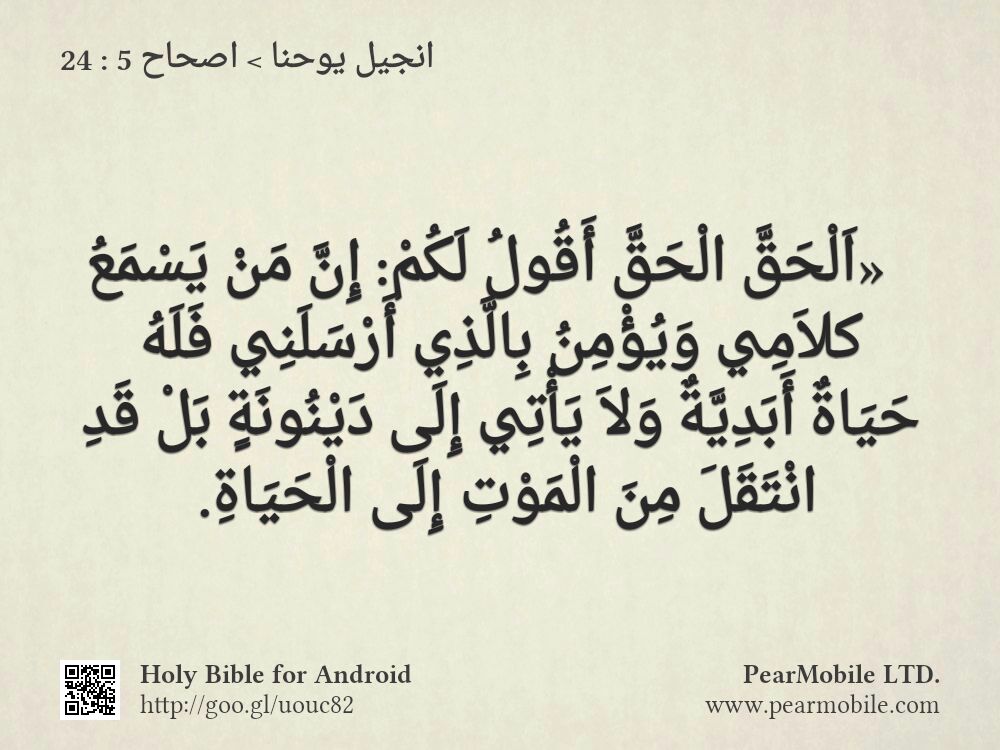 انجيل يوحنا > اصحاح 5 : 24
«اَلْحَقَّ الْحَقَّ أَقُولُ لَكُمْ: إِنَّ مَنْ يَسْمَعُ
كلاَمِي وَيُؤْمِنُ بِالَّذِي أَرْسَلَنِي فَلَهُ
حَيَاةٌ أَبَدِيَّةٌ وَلاَ يَأْتِي إِلَى دَيْنُونَةٍ بَلْ قَدِ
انْتَقَلَ مِنَ الْمَوْتِ إِلَى الْحَيَاةِ.
Holy Bible for Android
http://goo.gl/uouc82
PearMobile LTD.
www.pearmobile.com